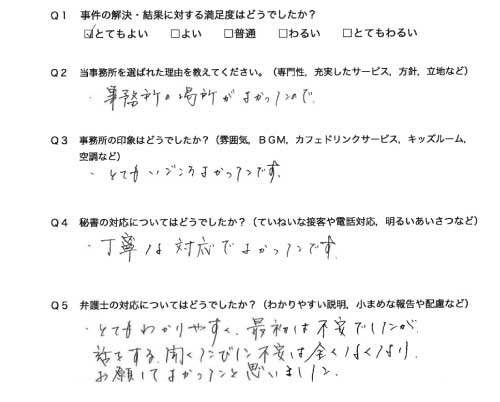 Q1 事件の解決・結果に対する満足度はどうでしたか？
☑とてもよい □よい □普通 □わるい □とてもわるい
Q2 当事務所を選ばれた理由を教えてください。（専門性，充実したサービス，方針，立地など）
・事務所の場所がよかったので.
Q3 事務所の印象はどうでしたか？（雰囲気，BGM，カフェドリンクサービス，キッズルーム，
空調など）
・とてもいごこちよかったです.
Q4 秘書の対応についてはどうでしたか？（ていねいな接客や電話対応，明るいあいさつなど）
・丁寧な対応でよかったです.
Q5 弁護士の対応についてはどうでしたか？（わかりやすい説明，小まめな報告や配慮など）
・とてもわかりやすく、最初は不安でしたが
話をする、聞くたびに不安は全くなくなり
お願いしてよかったと思いました.